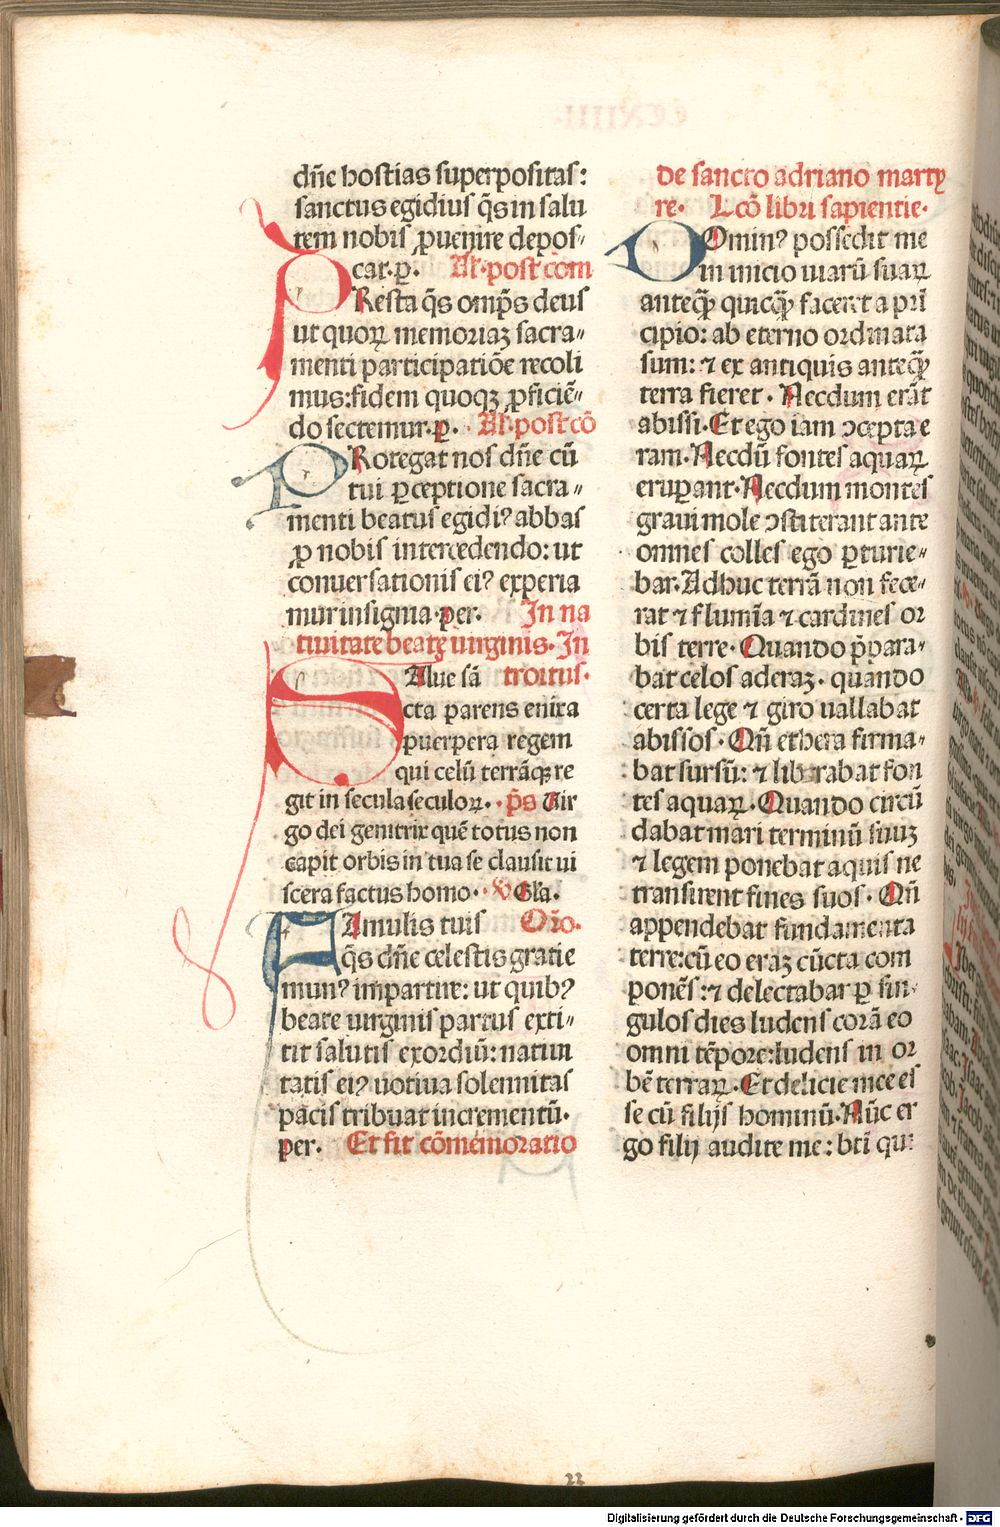 dn̄e hostias superpositas:
sanctus egidius q̄s in salu
tem nobis ꝓuenire depos⸗
cat.ꝑ. Al'·post com̄
PResta q̄s omp̄s deus
ut quoꝝ memoriaꝫ sacra⸗
menti participatiōe recoli
mus:fidem quoqꝫ ꝓficiē⸗
do sectemur.ꝑ. Al'·post cō
PRotegat nos dn̄e cū
tui ꝑceptione sacra⸗
menti beatus egidiꝰ abbas
ꝓ nobis intercedendo: ut
conuersationis eiꝰ experia
mur insigma·per. In na
tiuitate beatę uirginis· In
troitus·
SAlue sā
cta parens enixa
puerpera regem
qui celū terrāqꝫ re
git in secula seculoꝝ· p̄s Uir
go dei genitrix quē totus non
capit orbis in tua se clausit ui
scera factus homo· ℣ Gl̄a.
FAmulis tuis Or̄o.
q̄s dn̄e celestis gratie
munꝰ impartire: ut quibꝰ
beate uirginis partus exti⸗
tit salutis exordiū: natiui
tatis eiꝰ uotiua solennitas
pacis tribuat incrementū.
per. Et fit cōmemoratio
de sancto adriano marty
re· Lcō libri sapientie·
DOminꝰ possedit me
in inicio uiarū suaꝝ
anteꝙ̄ quicꝙ̄ faceret a pri
cipio: ab eterno ordinata
sum: ⁊ ex antiquis anteꝙ̄
terra fieret. Necdum erāt
abissi. Et ego iam ↄcepta e
ram. Necdū fontes aquaꝝ
eruꝑant. Necdum montes
graui mole ↄstiterant ante
omnes colles ego ꝑturie⸗
bar. Adhuc terrā non fece⸗
rat ⁊ flumīa ⁊ cardines or
bis terre. Quando p̄para⸗
bat celos aderaꝫ. quando
certa lege ⁊ giro uallabat
abissos. Qn̄ ethera firma⸗
bat sursū: ⁊ librabat fon
tes aquaꝝ. Quando circū
dabat mari terminū suuꝫ
⁊ legem ponebat aquis ne
transirent fines suos. Qn̄
appendebat fundamenta
terre: cū eo eraꝫ cūcta com
ponēs: ⁊ delectabar ꝑ sin
gulos dies ludens corā eo
omni tēpore: ludens in or
bē terraꝝ. Et delicie mee es
se cū filijs hominū. Nūc er
go filij audite me: bt̄i qui
22
Digitalisierung gefördert durch die Deutsche Forschungsgemeinschaft - DFG